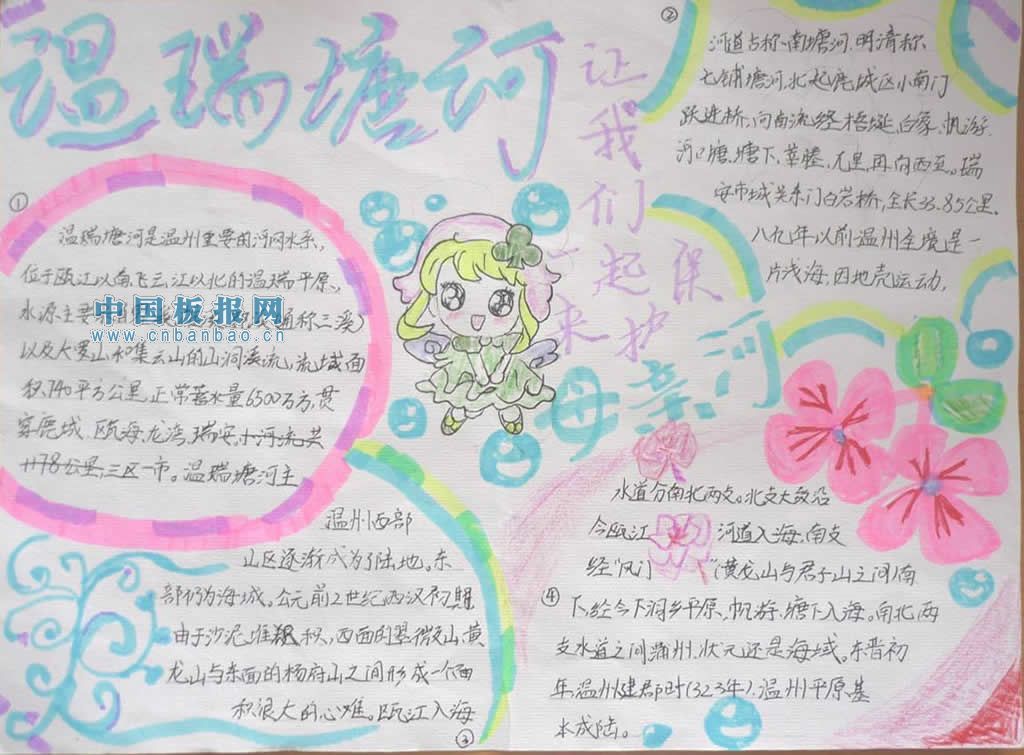 温瑞塘河
让我们一起来保护
母亲河
①
温瑞塘河是温州重要的河网水系,
位于瓯江以南飞云江以北的温瑞平原,
水源主要 通称三溪)
以及大罗山和集云山的山涧溪流,流域面
积740平方公里,正常蓄水量6500万方,贯
穿鹿城、瓯海、龙湾、瑞安,小河流共
1178公里,三区一市。温瑞塘河主
中国板报网
www.cnbanbao.cn
②
河道古称、南塘河,明清称、
七铺塘河,北起鹿城区小南门
跃进桥,向南流经梧埏,白象、帆游、
河口塘、塘下、莘塍、九里,再向西至。瑞
安市城关东门白岩桥,全长33.85公里.
八九年以前温州全境是一
片浅海,因地壳运动,
温州西部
山区逐渐成为了陆地。东
部仍为海城。公元前2世纪西汉初期
由于沙泥堆积,西面的翠微山、黄
龙山与东面的杨府山之间形成一个面
积很大的心滩。瓯江入海
③
水道分南北两支。北支大致沿
今瓯江 河道入海,南支
经"风门 "(黄龙山与君子山之间)南
④
下,经今下洞乡平原、帆游、塘下入海。南北两
支水道之间蒲州、状元还是海域。东晋初
年温州建郡时(323年),温州平原基
本成陆。